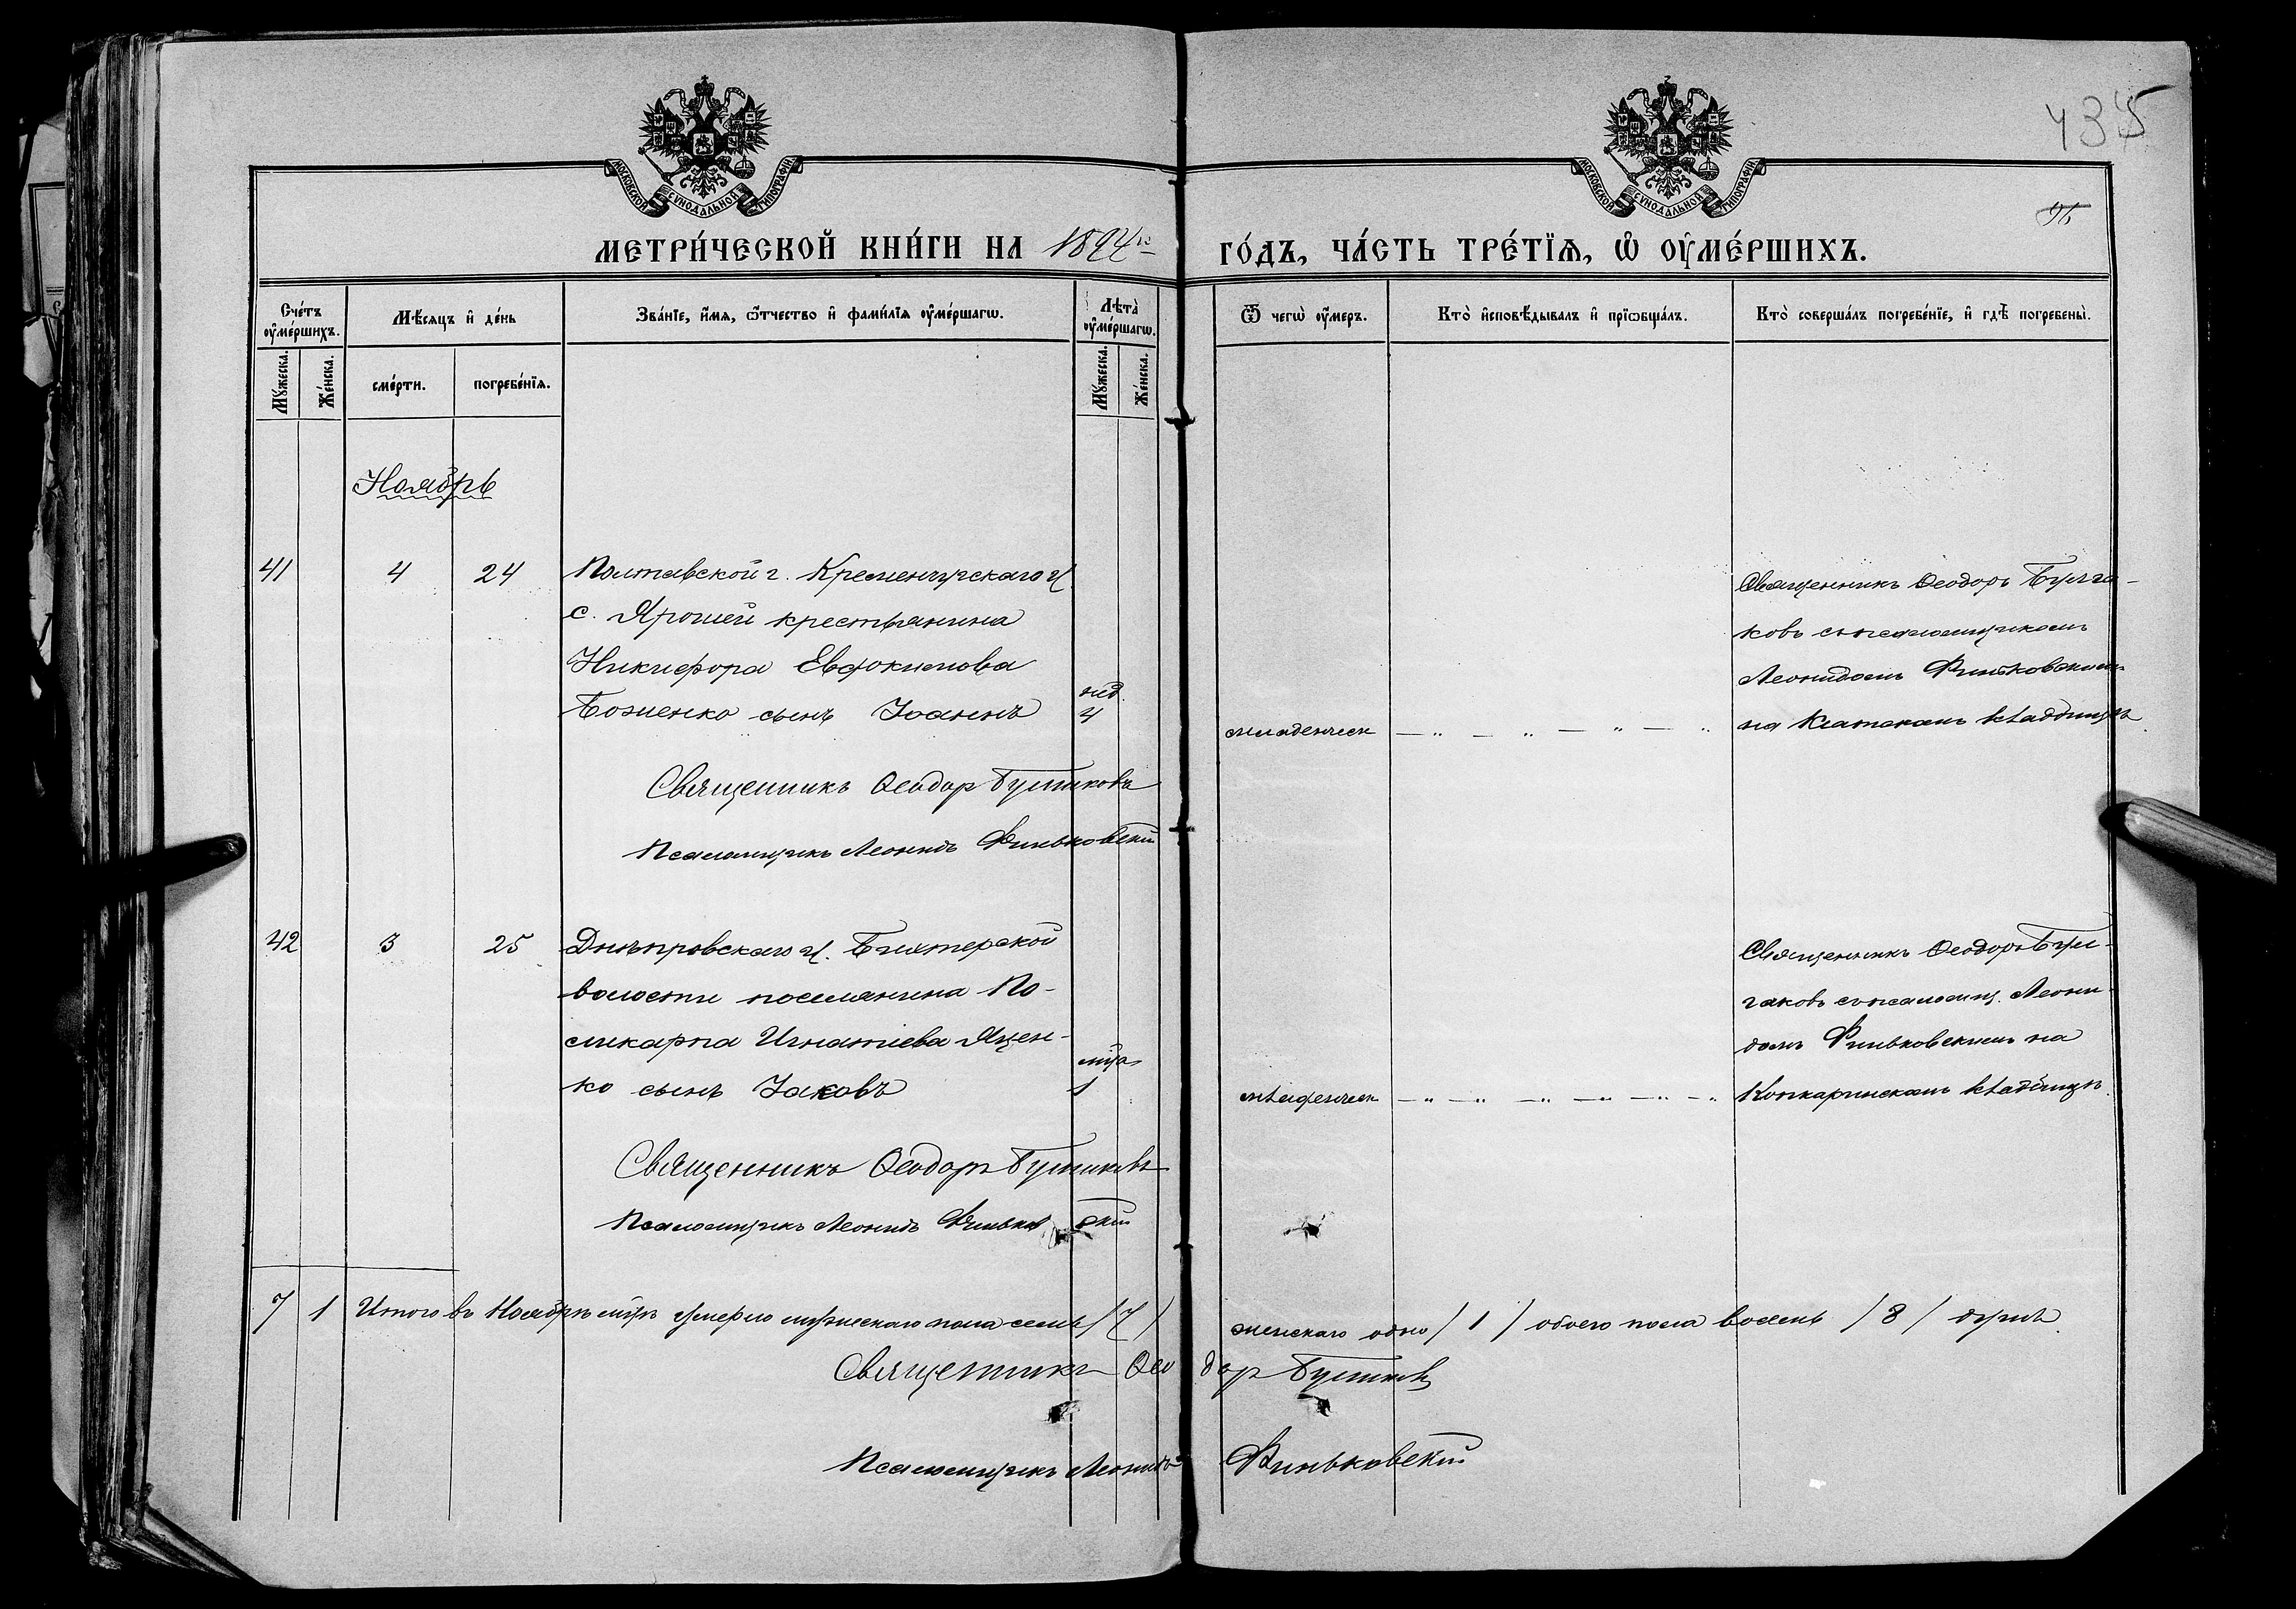 435
МОСКОВСКОЙ СѴНОДАЛЬНОЙ ТИПОГРАФІИ
МОСКОВСКОЙ СѴНОДАЛЬНОЙ ТИПОГРАФІИ
МЕТРИ́ЧЕСКОЙ КНИ́ГИ НА 1894 го́дъ, ча́сть тре́тїѧ, ѡ҆ ᲂу҆ме́ршихъ.
Сче́тъ ᲂу҆ме́ршихъ.
Мꙋ́жеска.
Же́нска.
Мѣ́сѧцъ и҆ де́нь
сме́рти.
погребе́нїѧ.
Зва́нїе, и҆́мѧ, ѻ҆́тчество и҆ фами́лїѧ ᲂу҆ме́ршагѡ.
Лѣта̀ ᲂу҆ме́ршагѡ.
Мꙋ́жеска.
Же́нска.
Ѿ чегѡ̀ ᲂу҆́меръ.
Кто̀ и҆сповѣ́дывалъ и҆ прїѡбща́лъ.
Кто̀ соверша́лъ погребе́нїе, и҆ гдѣ̀ погребены̀.
Ноябрь
41 4 24 Полтавской г. Кременчугскаго у.
с. Ярошей крестьянина
Никифора Евдокимова
Боженко сынъ Іоаннъ
нед.
4
младенческ
Священникъ Ѳеодоръ Булга-
ковъ съ псаломщикомъ
Леонидомъ Финьковскимъ
на кладбищѣ
Священникъ Ѳеодоръ Булгаковъ
Псаломщикъ Леонидъ Финьковскій
42 3 25 Днѣпровскаго у. Бехтерской
волости поселянина По-
ликарпа Игнатіева Яцен-
ко сынъ Іаковъ
мѣс.
1
младенческ
Священникъ Ѳеодоръ Бул-
гаковъ съ псаломщ. Леони-
домъ Финьковскимъ на
кладбищѣ
Священникъ Ѳеодоръ Булгаковъ
Псаломщикъ Леонидъ Финьковскій
7 1 Итого въ Ноябрѣ мѣс. умерло мужескаго пола семь /7/ женскаго одно /1/ обоего пола восемь /8/ душъ.
Священникъ Ѳеодоръ Булгаковъ
Псаломщикъ Леонидъ Финьковскій